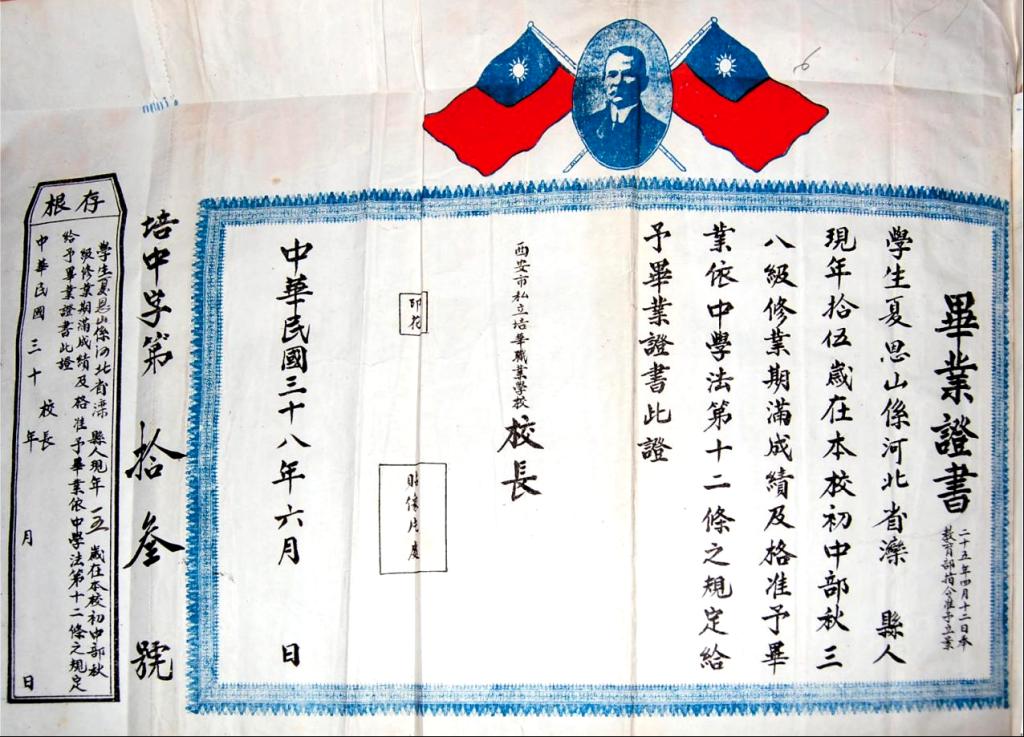 畢業證書
二十五年四月十二日奉
教育部指令准予立案
學生夏恩山係河北省灤 縣人
現年拾伍歲在本校初中部秋三
八級修業期滿成績及格准予畢
業依中學法第十二條之規定給
予畢業證書此證
西安市私立培華職業學校 校長
印花
貼像片處
中華民國三十八年六月 日
培中字第 拾叁 號
存根
學生夏恩山係河北省灤 縣人現年 一五 歲在本校初中部秋
級修業期滿成績及格准予畢業依中學法第十二條之規定
給予畢業證書此證
校長
中華民國 三十 年 月 日